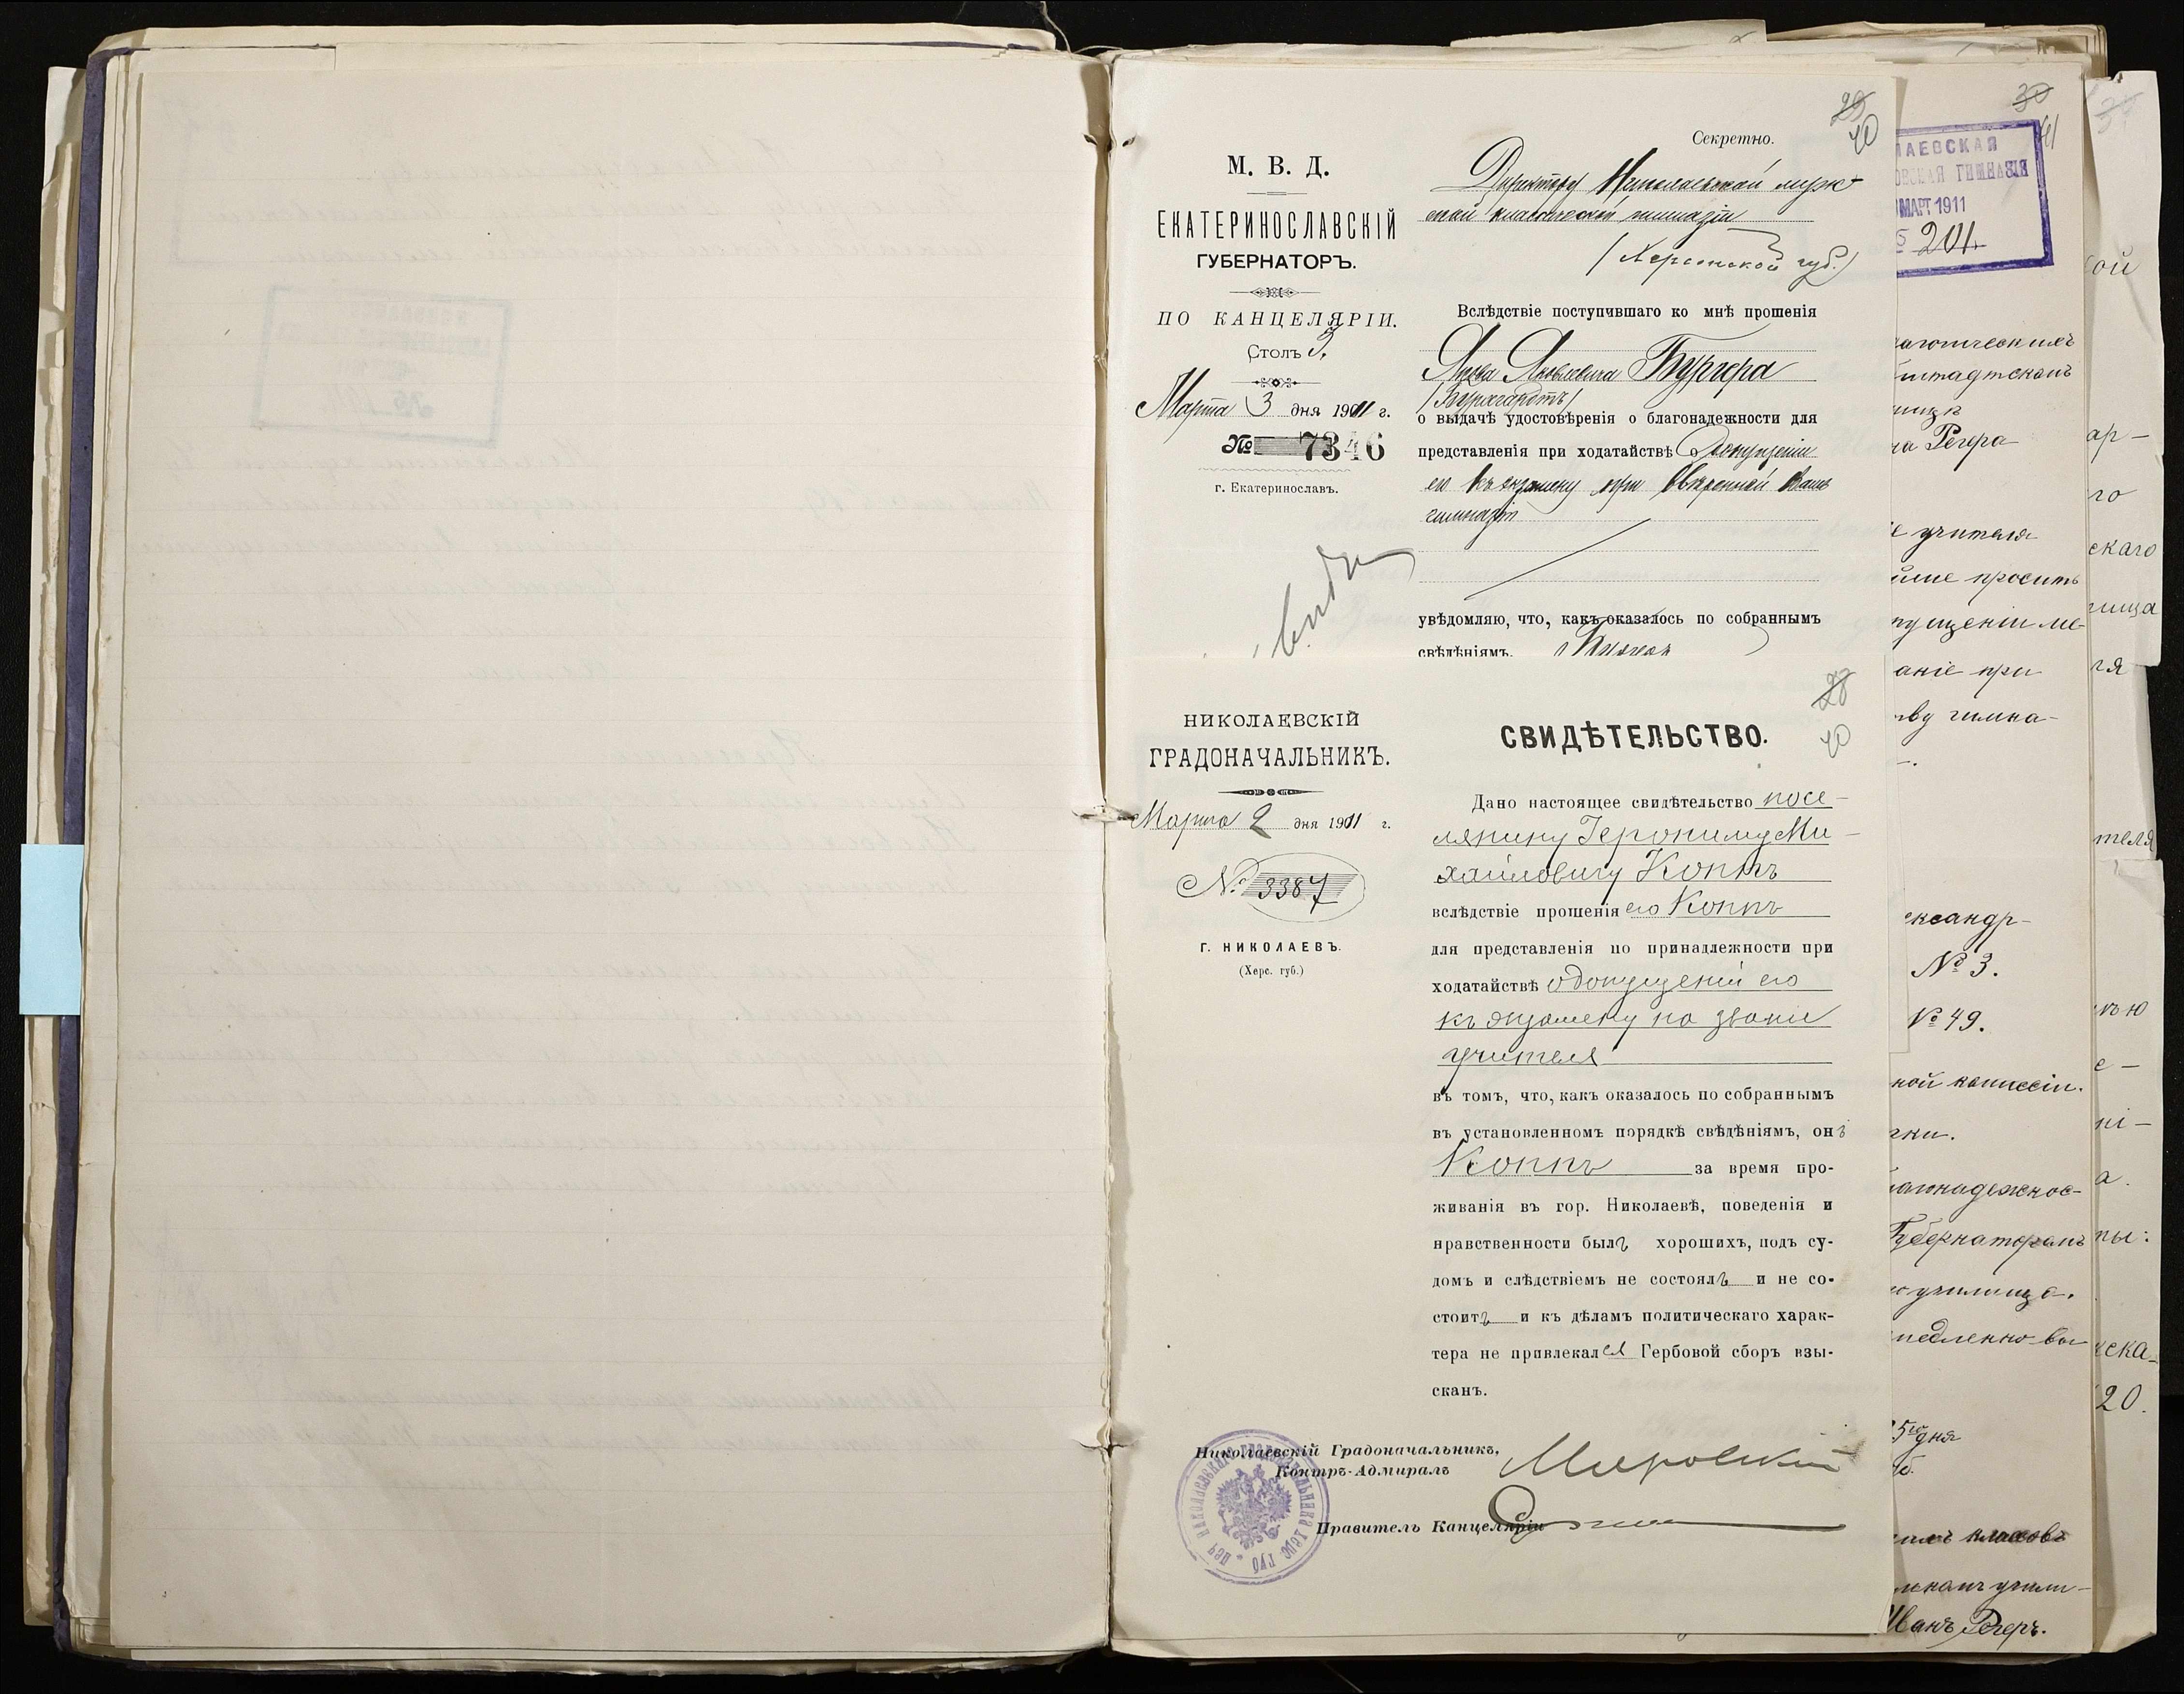 29
40
Секретно.
М. В. Д.
ЕКАТЕРИНОСЛАВСКІЙ
ГУБЕРНАТОРЪ.
ПО КАНЦЕЛЯРІИ.
Столъ 3.
Марта 3 дня 1911 г.
№ 7346
г. Екатеринославъ.
Директору Николаевской мужс-
кой классической гимназіи
(Херсонской губ.)
Вслѣдствіе поступившаго ко мнѣ прошенія
Якова Яковлевича Бургера
о выдачѣ удостовѣренія о благонадежности для
представленія при ходатайствѣ о допущеніи
его къ экзамену при ввѣренной Вамъ
гимназіи
увѣдомляю, что, какъ оказалось по собраннымъ
свѣдѣніямъ.
28
40
НИКОЛАЕВСКІЙ
ГРАДОНАЧАЛЬНИКЪ.
Марта 2 дня 1911 г.
№ 3387
Г. НИКОЛАЕВЪ.
(Херс. губ.)
СВИДѢТЕЛЬСТВО.
Дано настоящее свидѣтельство посе-
лянину Іерониму Ми-
хайловичу Коппъ
вслѣдствіе прошенія его Коппъ
для представленія по принадлежности при
ходатайствѣ о допущеніи его
къ экзамену на званіе
учителя
въ томъ, что, какъ оказалось по собраннымъ
въ установленномъ порядкѣ свѣдѣніямъ, онъ
Коппъ за время про-
живанія въ гор. Николаевѣ, поведенія и
нравственности былъ хорошихъ, подъ су-
домъ и слѣдствіемъ не состоялъ и не со-
стоитъ и къ дѣламъ политическаго харак-
тера не привлекался Гербовой сборъ взы-
сканъ.
Николаевскій Градоначальникъ,
Контръ-Адмиралъ
Правитель Канцеляріи
30
41
ЛАЕВСКАЯ
ОВСКАЯ ГИМНАЗІЯ
МАРТ 1911
201
на Регера
е учителя
просить
пущеніи ме-
аніе при
ву гимна-
ександр-
№ 3.
№ 49.
ной комиссіи.
агонадежнос-
Губернаторомъ
училища.
медленно вы-
5го дня
классовъ
учили-
Иванъ Регеръ.
ой
ар-
го
скаго
лища
ля
теля
а.
ны:
20.